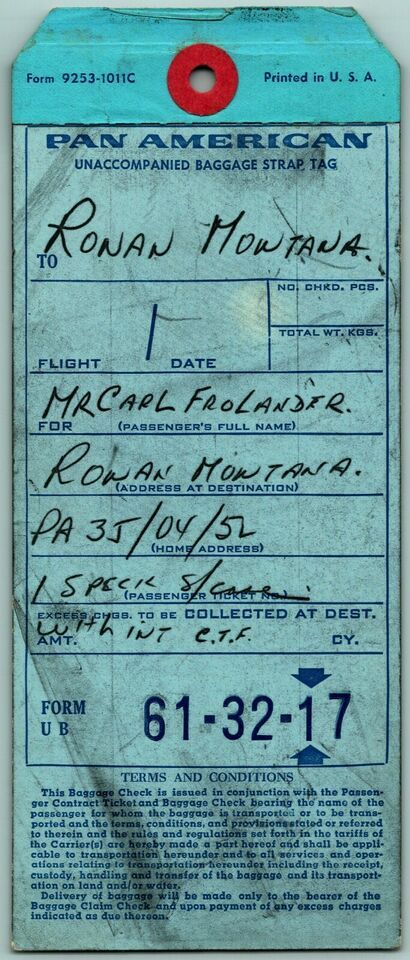 Form 9253-1011C Printed in U. S. A.
PAN AMERICAN
UNACCOMPANIED BAGGAGE STRAP TAG
RONAN MONTANA.
TO
NO. CHKD. PCS.
TOTAL WT. KGS.
FLIGHT / DATE
MR CARL FROLANDER.
FOR (PASSENGER'S FULL NAME)
RONAN MONTANA.
(ADDRESS AT DESTINATION)
PA 35/04/52
(HOME ADDRESS)
1 SPECK S/case.
(PASSENGER TICKET NO.)
EXCESS CHGS. TO BE COLLECTED AT DEST.
WITH INT C.T.F.
AMT. CY.
FORM
U B
61-32-17
TERMS AND CONDITIONS
This Baggage Check is issued in conjunction with the Passen-
ger Contract Ticket and Baggage Check bearing the name of the
passenger for whom the baggage is transported or to be trans-
ported and the terms, conditions, and provisions stated or referred
to therein and the rules and regulations set forth in the tariffs of
the Carrier(s) are hereby made a part hereof and shall be appli-
cable to transportation hereunder and to all services and oper-
ations relating to transportation hereunder including the receipt,
custody, handling and transfer of the baggage and its transport-
ation on land and/or water.
Delivery of baggage will be made only to the bearer of the
Baggage Claim Check and upon payment of any excess charges
indicated as due thereon.